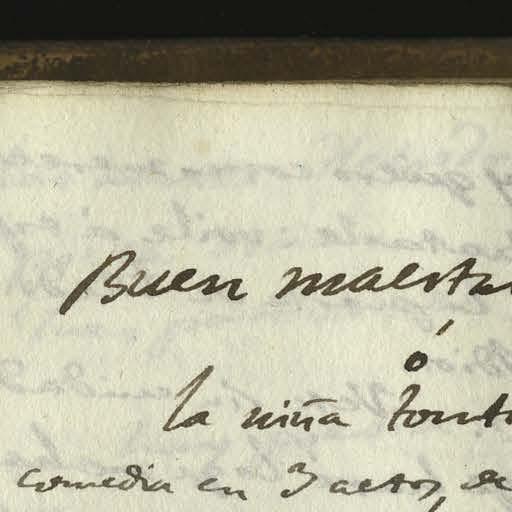 Buen maest
ó
la niña tont
comedia en 3 actos, de